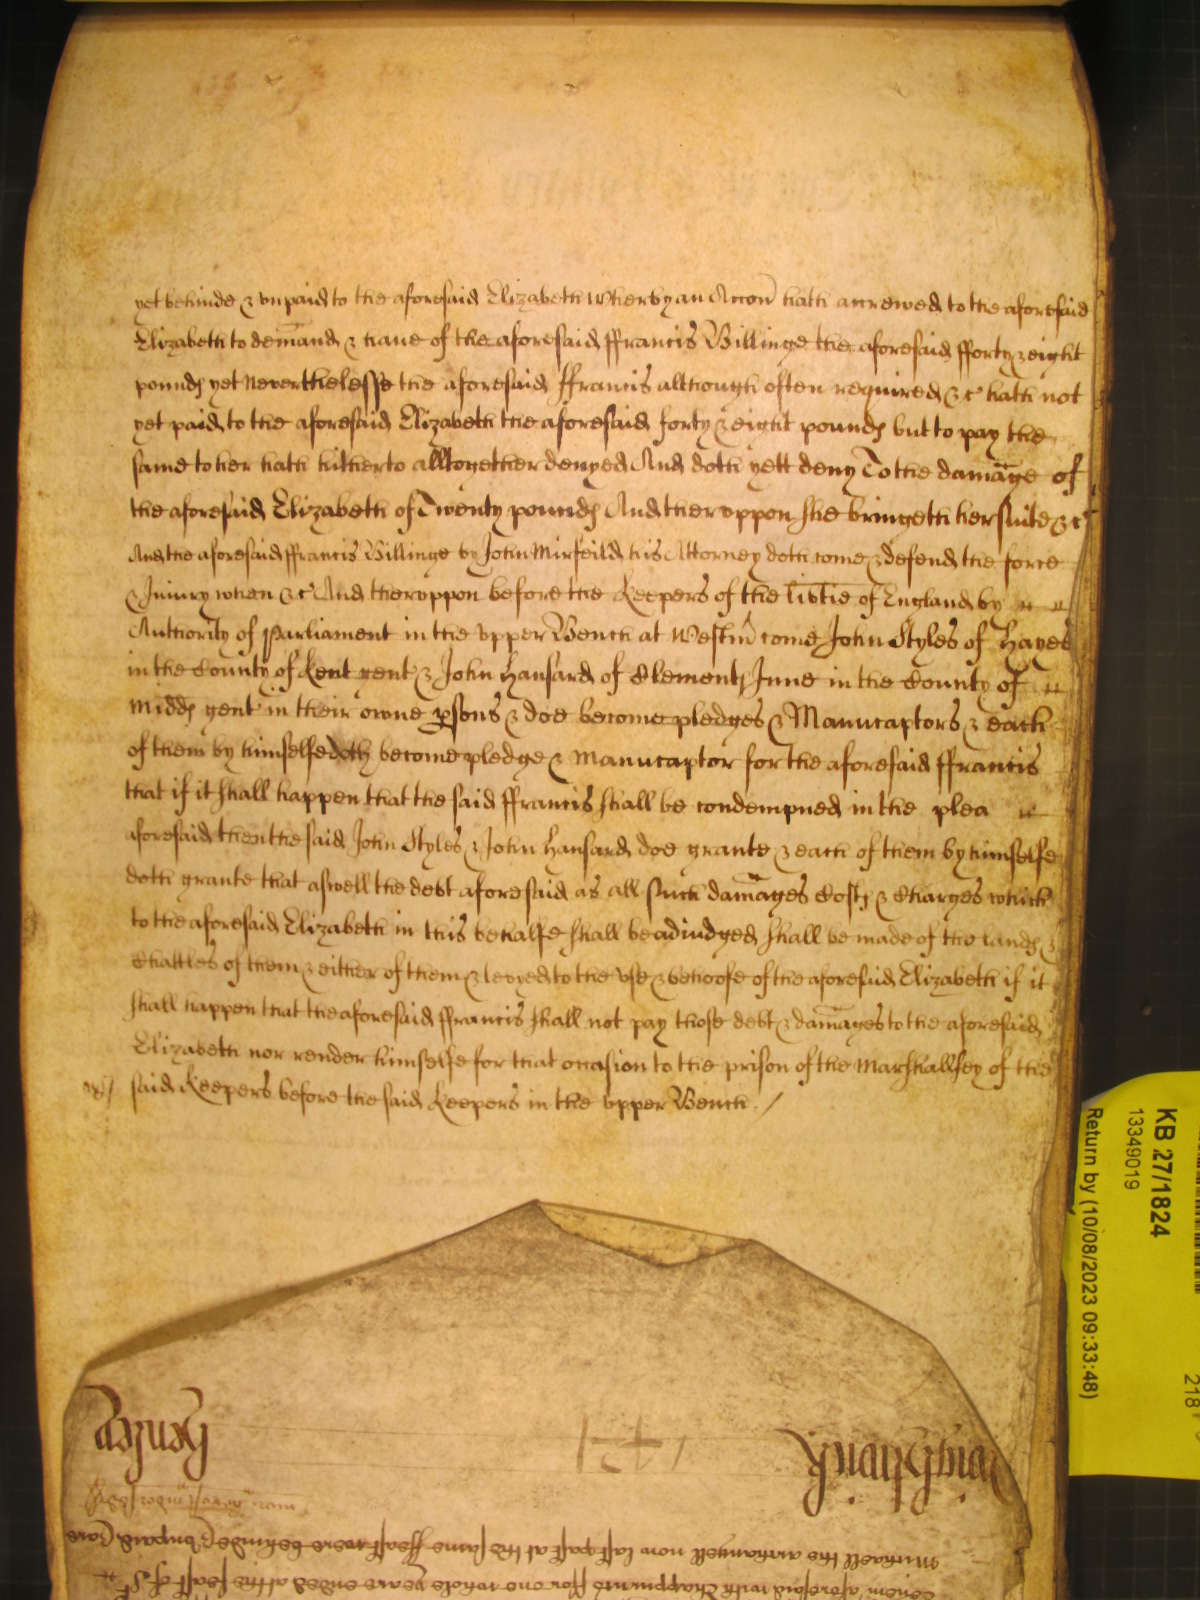 yet behinde & unpaid to the aforesaid Elizabeth Wherby an Accon hath accrewed to the aforesaid
Elizabeth to demand & have of the aforesaid ffrancis Billinge the aforesaid fforty & eight
pounds yet neverthelesse the aforesaid ffrancis although often required &c hath not
yet paid to the aforesaid Elizabeth the aforesaid forty & eight pounds but to pay the
same to her hath hitherto alltogether denyed And doth yett deny To the damage of
the aforesaid Elizabeth of Twenty pounds And theruppon she bringeth her suite &c
And the aforesaid ffrancis Billinge by John Mirfeild his Attorney doth come & defend the force
& Iniury when &c And theruppon before the Keepers of the libtie of England by
Authority of Parliament in the upper Bench at Westm come John Styles of Hayes
in the County of Kent gent & John Hansard of Clements Inne in the County of
Midds gent in their owne psons & doe become pledges & Manucaptors & each
of them by himselfe doth become pledge & Manucaptor for the aforesaid ffrancis
that if it shall happen that the said ffrancis shall be condempned in the plea
aforesaid then the said John Styles & John Hansard doe grante & each of them by himselfe
doth grante that aswell the debt aforesaid as all such damages Costs & Charges which
to the aforesaid Elizabeth in this behalfe shall be adiudged shall be made of the lands &
Chattles of them & either of them & levyed to the use & behoofe of the aforesaid Elizabeth if it
shall happen that the aforesaid ffrancis shall not pay those debt & damages to the aforesaid
Elizabeth nor render himselfe for that occasion to the prison of the Marshallsey of the
said Keepers before the said Keepers in the upper Bench
KB 27/1824
13349019
Return by (10/08/2023 09:33:48)
218
Michaell the archangell now last past at the same ffeast were behinde & unpaid